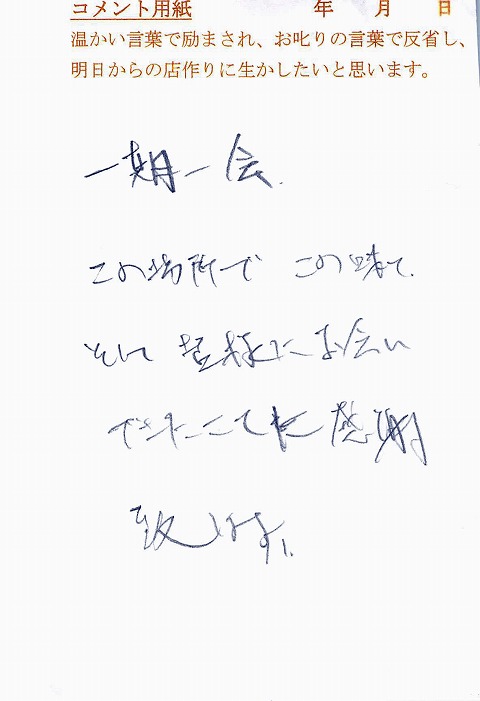 コメント用紙 年 月 日
温かい言葉で励まされ、お叱りの言葉で反省し、
明日からの店作りに生かしたいと思います。
一期一会.
この場所で この味で.
そして 皆様にお会い
できたことに感謝
致します.